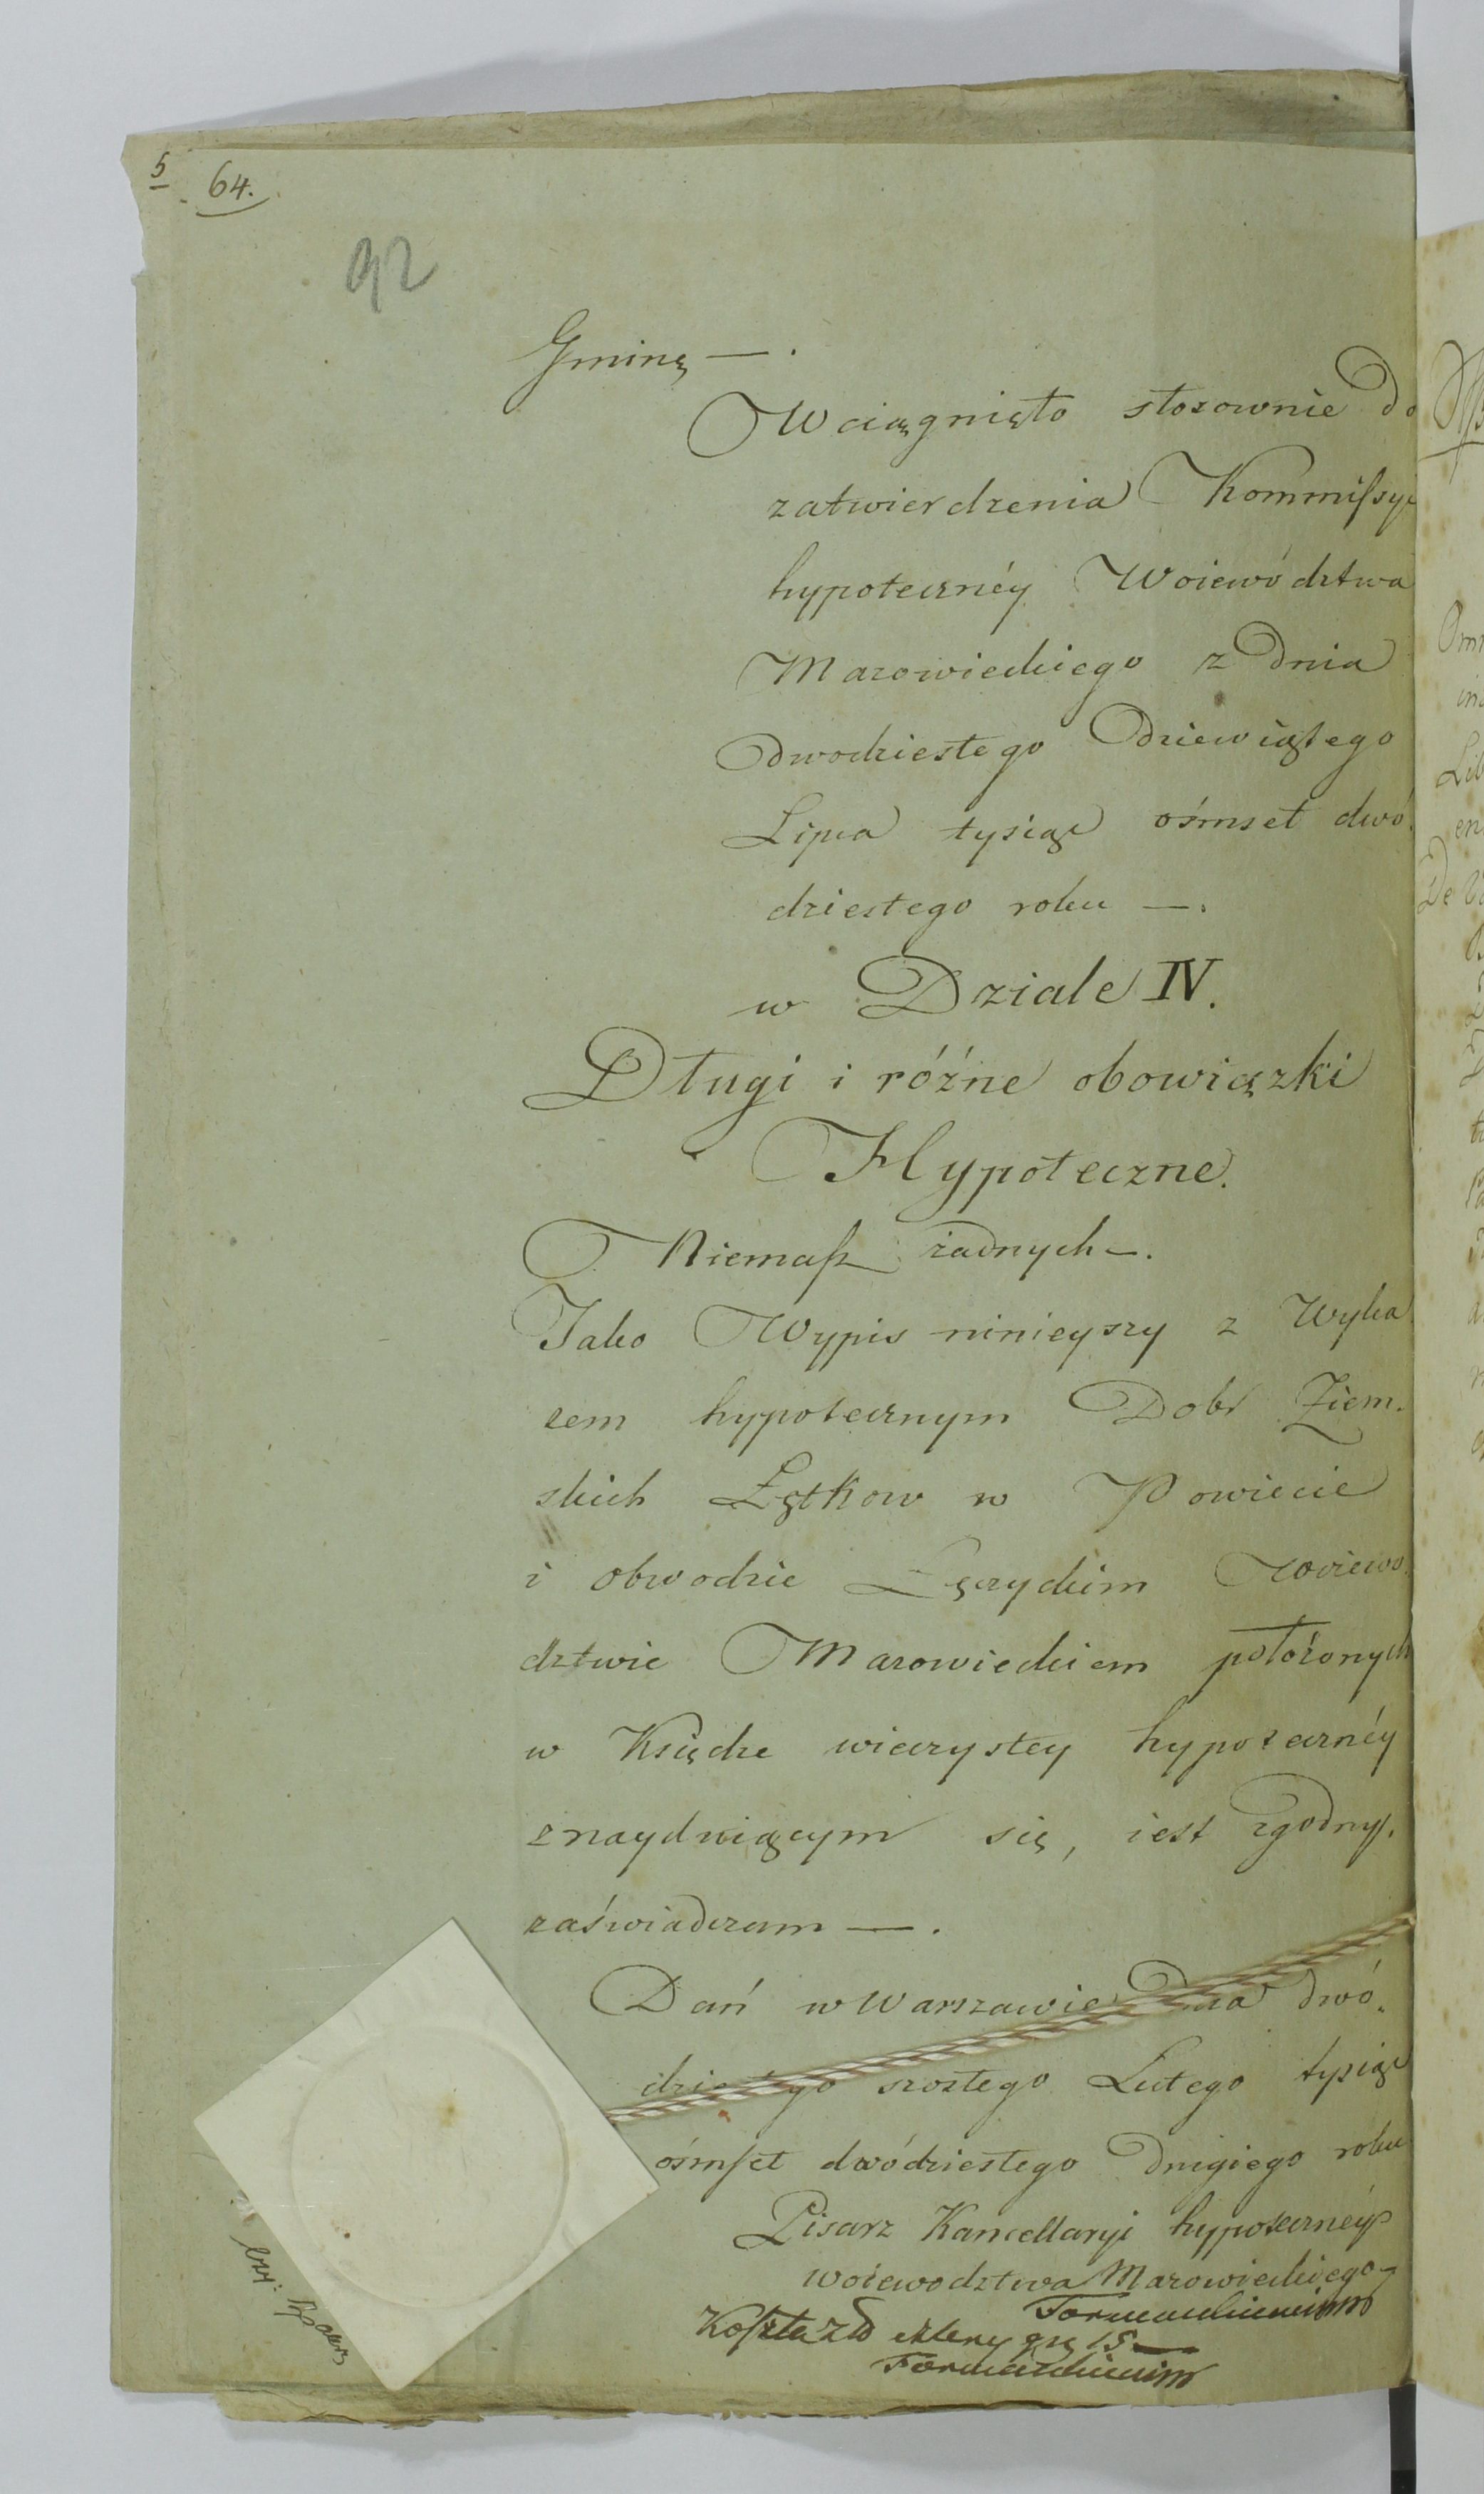 5 64.
92
Gminę —.
Wciągnięto stosownie do
zatwierdzenia Kommiſsyi
hypotecznéy Woiewództwa
Mazowieckiego z dnia
dwodziestego dziewiątego
Lipca tysiąc ośmset dwó.
dziestego roku —.
w Dziale IV.
Długi i różne obowiązki
Hypoteczne.
Niemaſz żadnych —.
Jako Wypis ninieyszy z Wyka
zem hypotecznym Dobr Ziem.
skich Łętkow w Powiecie
i obwodzie Łęczyckim Woiewo.
dztwie Mazowieckiem położonych
w Księdze wieczystey hypotecznéy
znayduiącym się, iest zgodny.
zaświadczam —.
Dań w Warszawie Dnia dwó.
dziestego szostego Lutego tysiąc
ośmſet dwódziestego drugiego roku
Pisarz Kancellaryi hypoteczney
woiewodztwa Mazowieckiego
Koſzta Zło cztery gr 15 —